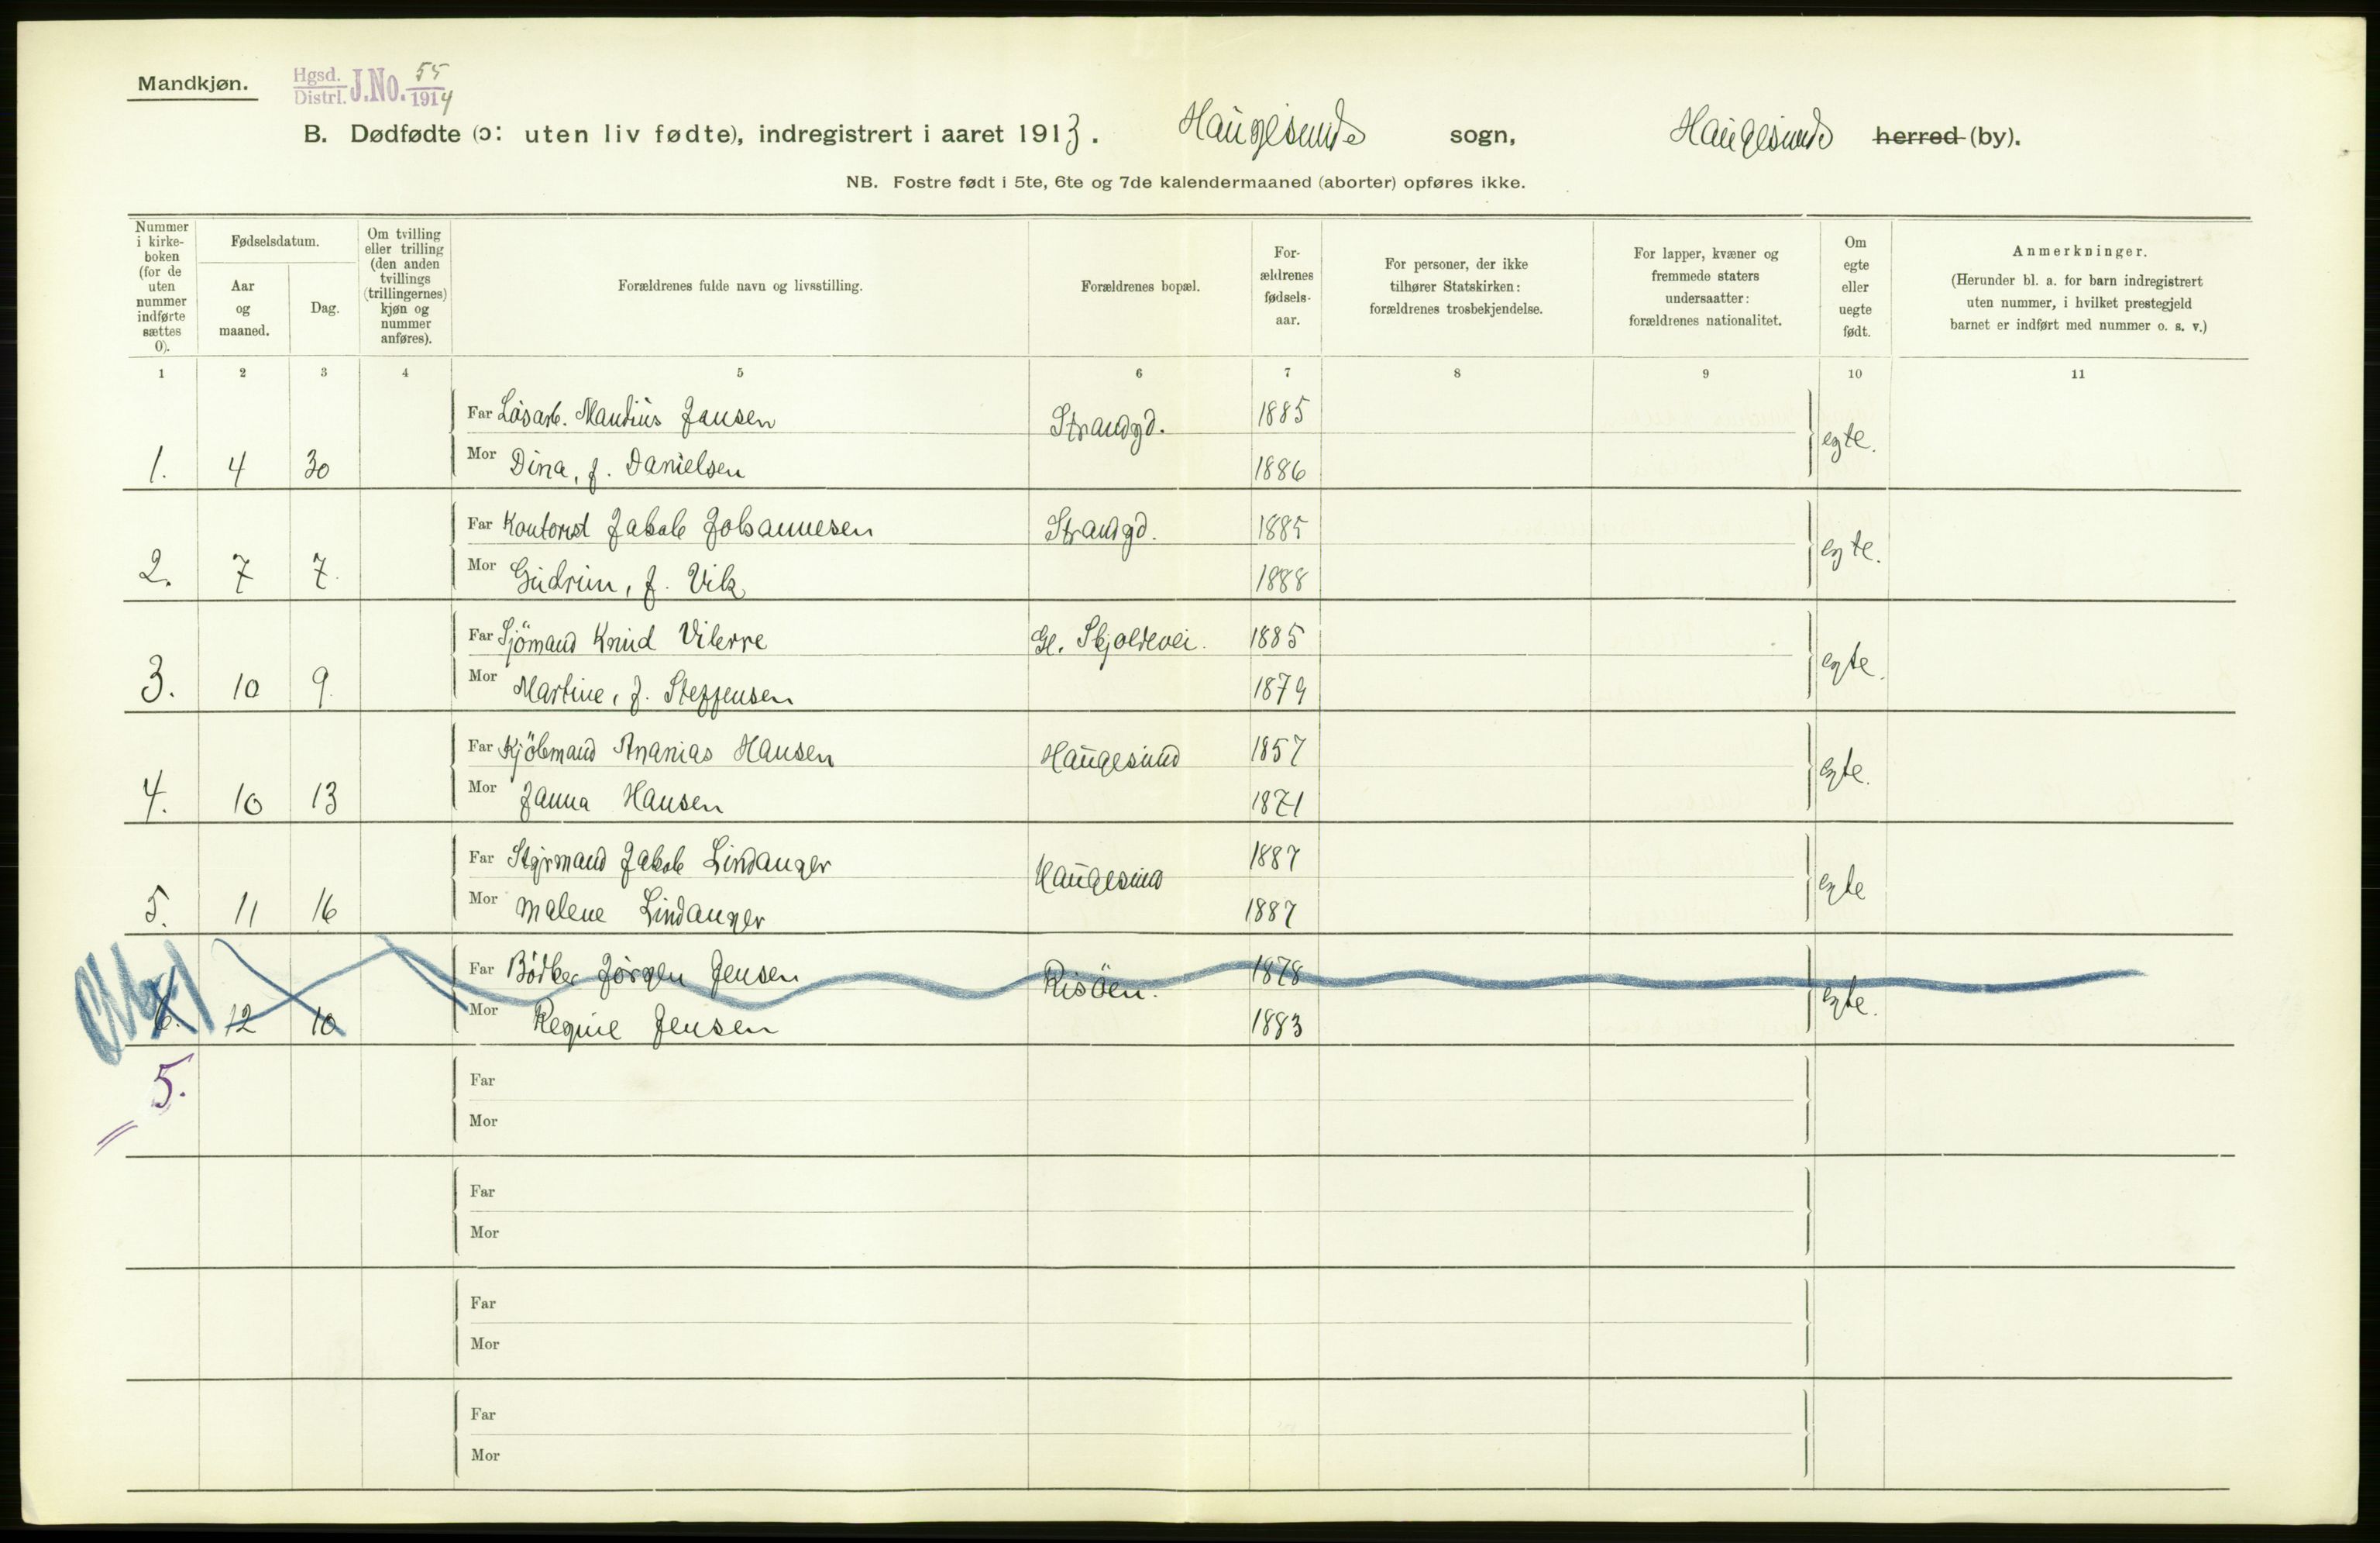 Mandkjøn.
Hgsd. Distrl. J.No. 55 1914
B. Dødfødte (ɔ: uten liv fødte), indregistrert i aaret 1913. Haugesunds sogn, Haugesunds herred (by).
NB. Fostre født i 5te, 6te og 7de kalendermaaned (aborter) opføres ikke.
Nummer i kirke-boken (for de uten nummer indførte sættes 0).
Fødselsdatum.
Aar og maaned.
Dag.
Om tvilling eller trilling (den anden tvillings (trillingernes) kjøn og nummer anføres).
Forældrenes fulde navn og livsstilling.
Forældrenes bopæl.
For-ældrenes fødsels-aar.
For personer, der ikke tilhører Statskirken: forældrenes trosbekjendelse.
For lapper, kvæner og fremmede staters undersaatter: forældrenes nationalitet.
Om egte eller uegte født.
Anmerkninger.
(Herunder bl. a. for barn indregistrert uten nummer, i hvilket prestegjeld barnet er indført med nummer o. s. v.)
1 2 3 4 5 6 7 8 9 10 11
Far Løsarb. Mandius Jansen Strandgd. 1885
1. 4 30 Mor Dina, f. Danielsen 1886 egte.
Far Kontorist Jakob Johannesen Strandgd. 1885
2. 7 7. Mor Gudrun, f. Vik 1888 egte.
Far Sjömand Knud Vikerre Gl. Skjoldevei. 1885
3. 10 9. Mor Martine, f. Steffensen 1879 egte.
Far Kjöbmand Ananias Hansen Haugesund 1857
4. 10 13 Mor Janna Hansen 1871 egte.
Far Styrmand Jakob Lindanger Haugesund 1887
5. 11 16 Mor Malene Lindanger 1887 egte
Far Bödker Jörgen Jensen Risöen. 1878
6. 12 10 Mor Regine Jensen 1883 egte.
5.
Far
Mor
Far
Mor
Far
Mor
Far
Mor